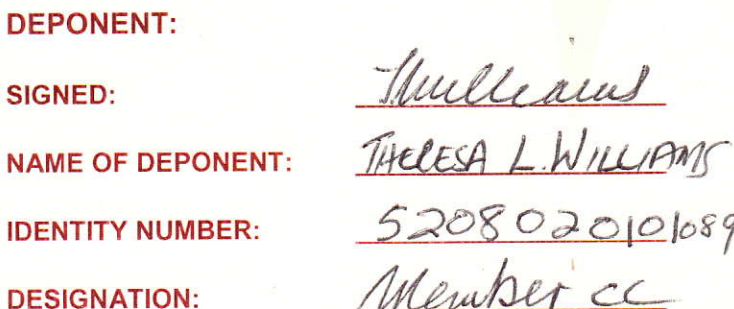 DEPONENT:
SIGNED: T Williams
NAME OF DEPONENT: THERESA L. WILLIAMS
IDENTITY NUMBER: 5208020101089
DESIGNATION: Member cc